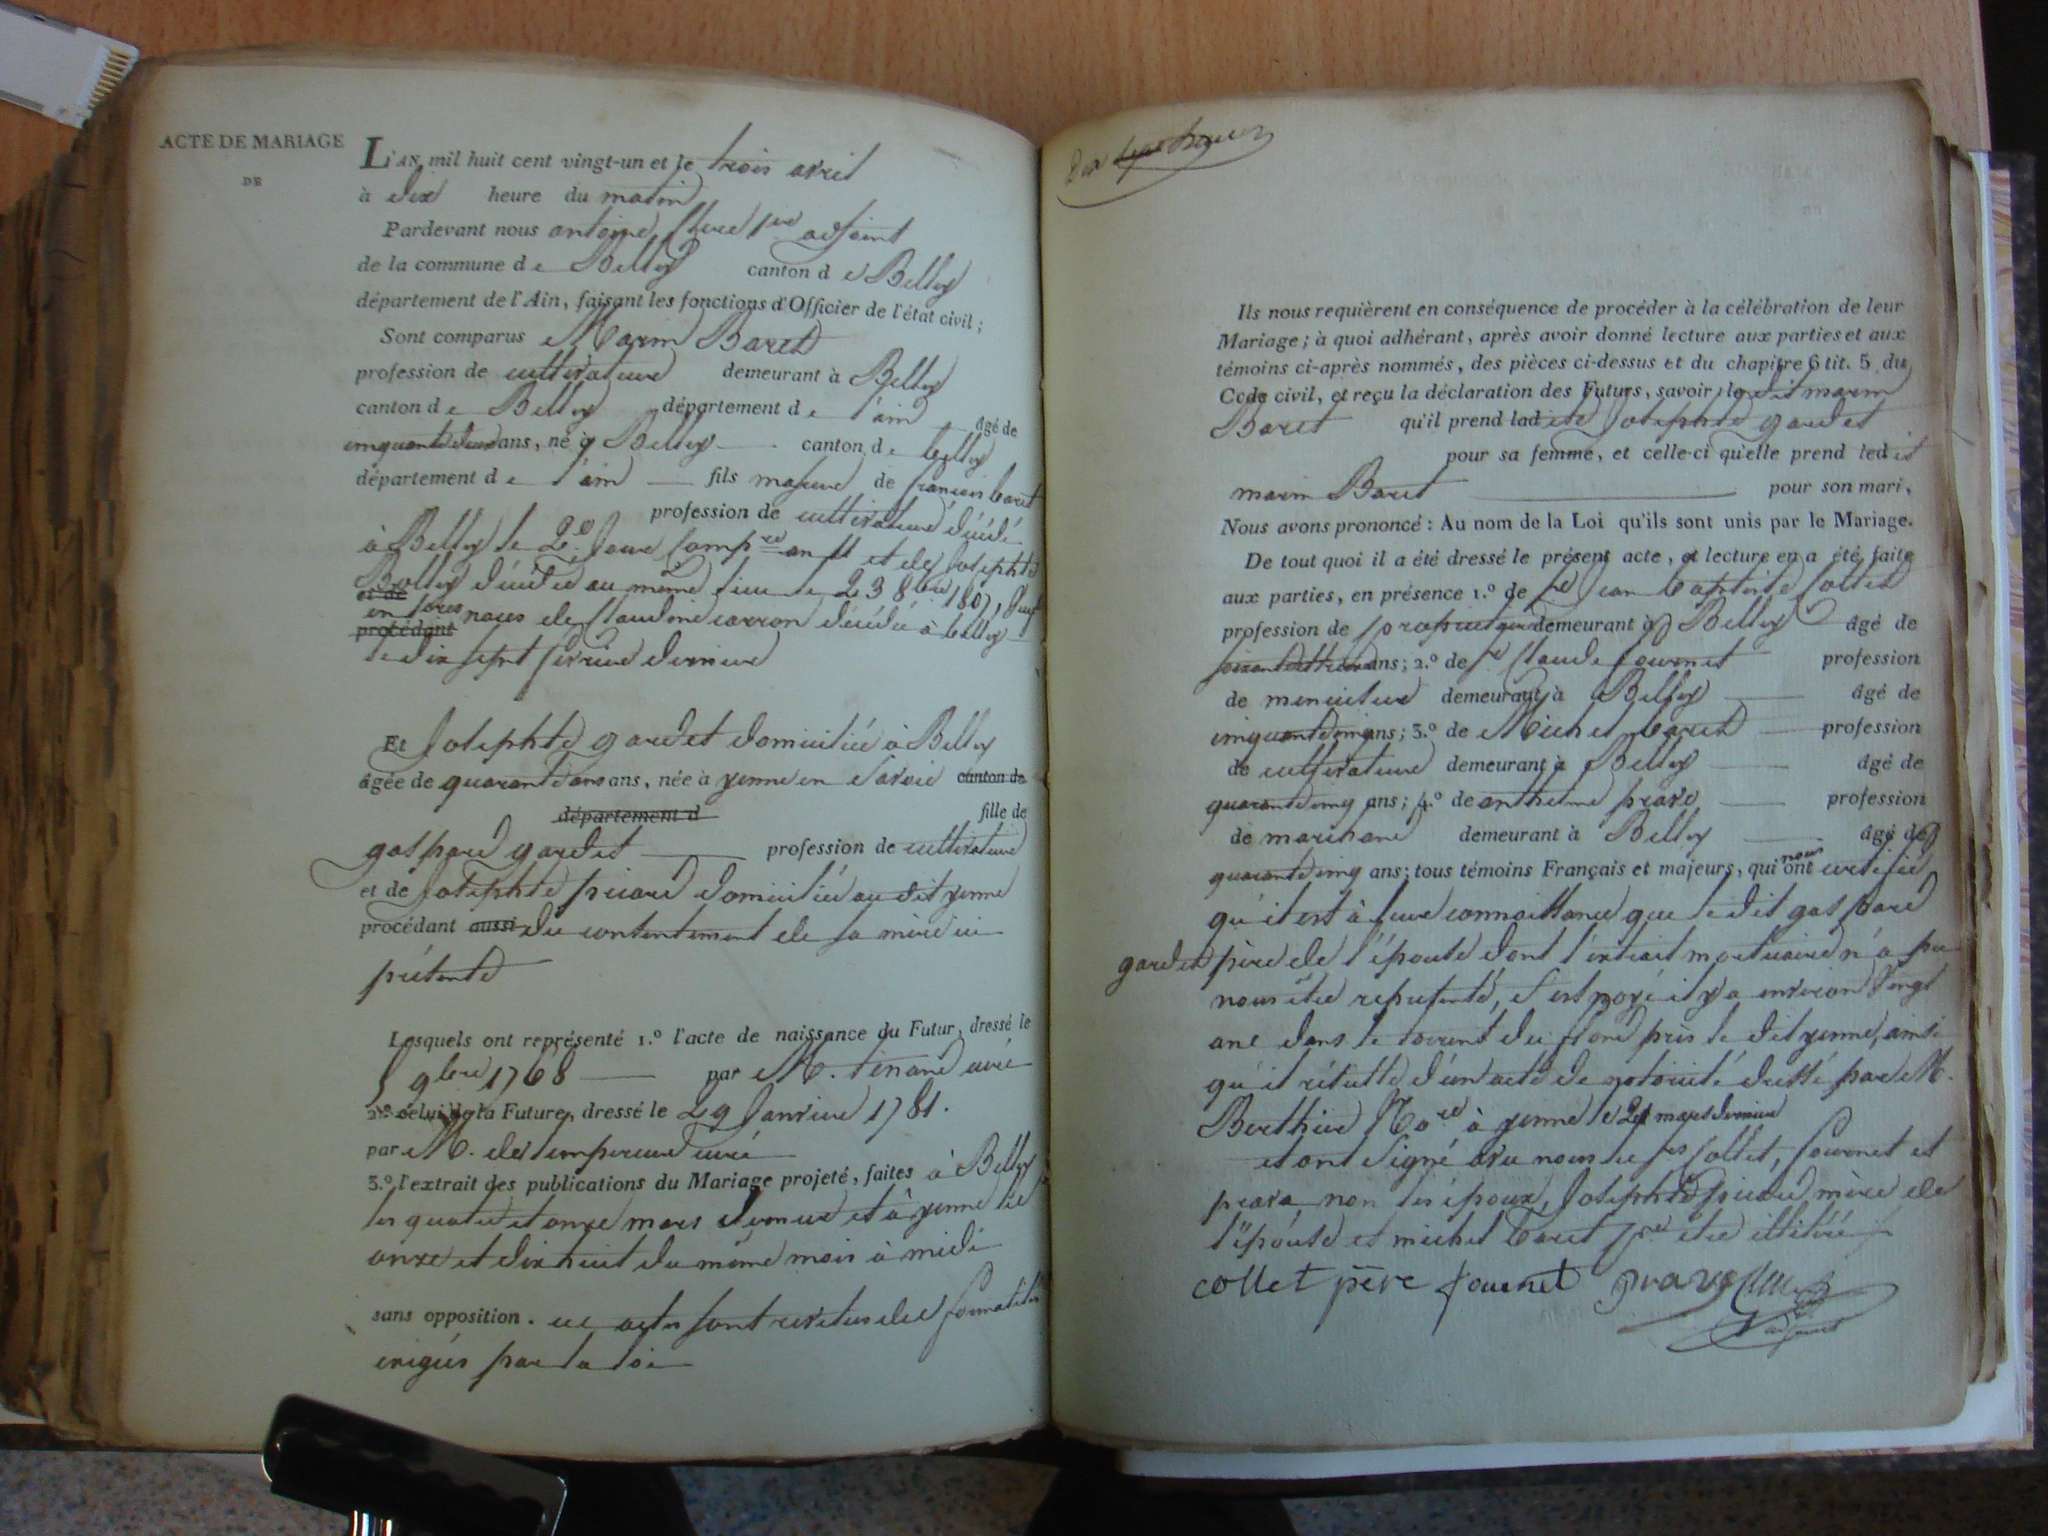 ACTE DE MARIAGE
DE
L'AN mil huit cent vingt-un et le trois avril
à dix heure du matin
Pardevant nous antoine 1er adjoint
de la commune de Belley canton de Belley
département de l'Ain, faisant les fonctions d'Officier de l'état civil ;
Sont comparus Marin Baret
profession de cultivateur demeurant à Belley
canton de Belley département de l'ain âgé de
cinquante deux ans, né à Belley canton de belley
département de l'ain fils majeur de françois baret
profession de cultivateur décédé
à Belley le 2e Jour Comp.re an 11 et de Josephte
Bolley décédée au même lieu le 23 8bre 1807, Veuf
et de
en 1eres noces de Claudine carron décédée à belley
procédant
le dix sept fevrier dernier
Et Josephte gardet domiciliée à Belley
âgée de quarante ans ans, née à yenne en Savoie canton de
département d fille de
gaspard gardet profession de cultivateur
et de Josephte picard domiciliée au dit yenne
procédant aussi du consentement de sa mère ici
présente
Lesquels ont représenté 1.° l'acte de naissance du Futur, dressé le
5 9bre 1768 par M. tenand curé
2.° celui de la Future, dressé le 29 Janvier 1781.
par M. de l'empereur curé
3.° l'extrait des publications du Mariage projeté, faites à Belley
les quatre et onze mars dernier et à yenne les
onze et dix huit du même mois à midi
sans opposition. ces actes sont revetus des formalités
exigées par la loi
Ils nous requièrent en conséquence de procéder à la célébration de leur
Mariage ; à quoi adhérant, après avoir donné lecture aux parties et aux
témoins ci-après nommés, des pièces ci-dessus et du chapitre 6 tit. 5 du
Code civil, et reçu la déclaration des Futurs, savoir ledit marin
Baret qu'il prend ladite Josephte gardet
pour sa femme, et celle-ci qu'elle prend ledit
marin Baret pour son mari,
Nous avons prononcé : Au nom de la Loi qu'ils sont unis par le Mariage.
De tout quoi il a été dressé le présent acte, et lecture en a été faite
aux parties, en présence 1.° de Sr Jean baptiste Collet
profession de propriétaire demeurant à Belley âgé de
soixante ans ; 2.° de Sr Claude fournet profession
de menuisier demeurant à Belley âgé de
cinquante cinq ans ; 3.° de Michel baret profession
de cultivateur demeurant à Belley âgé de
quarante cinq ans ; 4.° de anthelme prave profession
de marchand demeurant à Belley âgé de
quarante cinq ans ; tous témoins Français et majeurs, qui nous ont certifié
qu'il est à leur connaissance que le dit gaspard
gardet père de l'épouse dont l'extrait mortuaire n'a pu
nous être représenté, s'est noyé il y a environ vingt
ans dans le torrent du flond près le dit yenne, ainsi
qu'il résulte d'un acte de notoriété dressé par M.
Berthier No.re à yenne le 21 mars dernier
et ont signé avec nous les Srs Collet, fournet et
prave non les époux, Josephte picard mère de
l'épouse et michel baret pour être illitérés
collet père fournet prave
adjoint